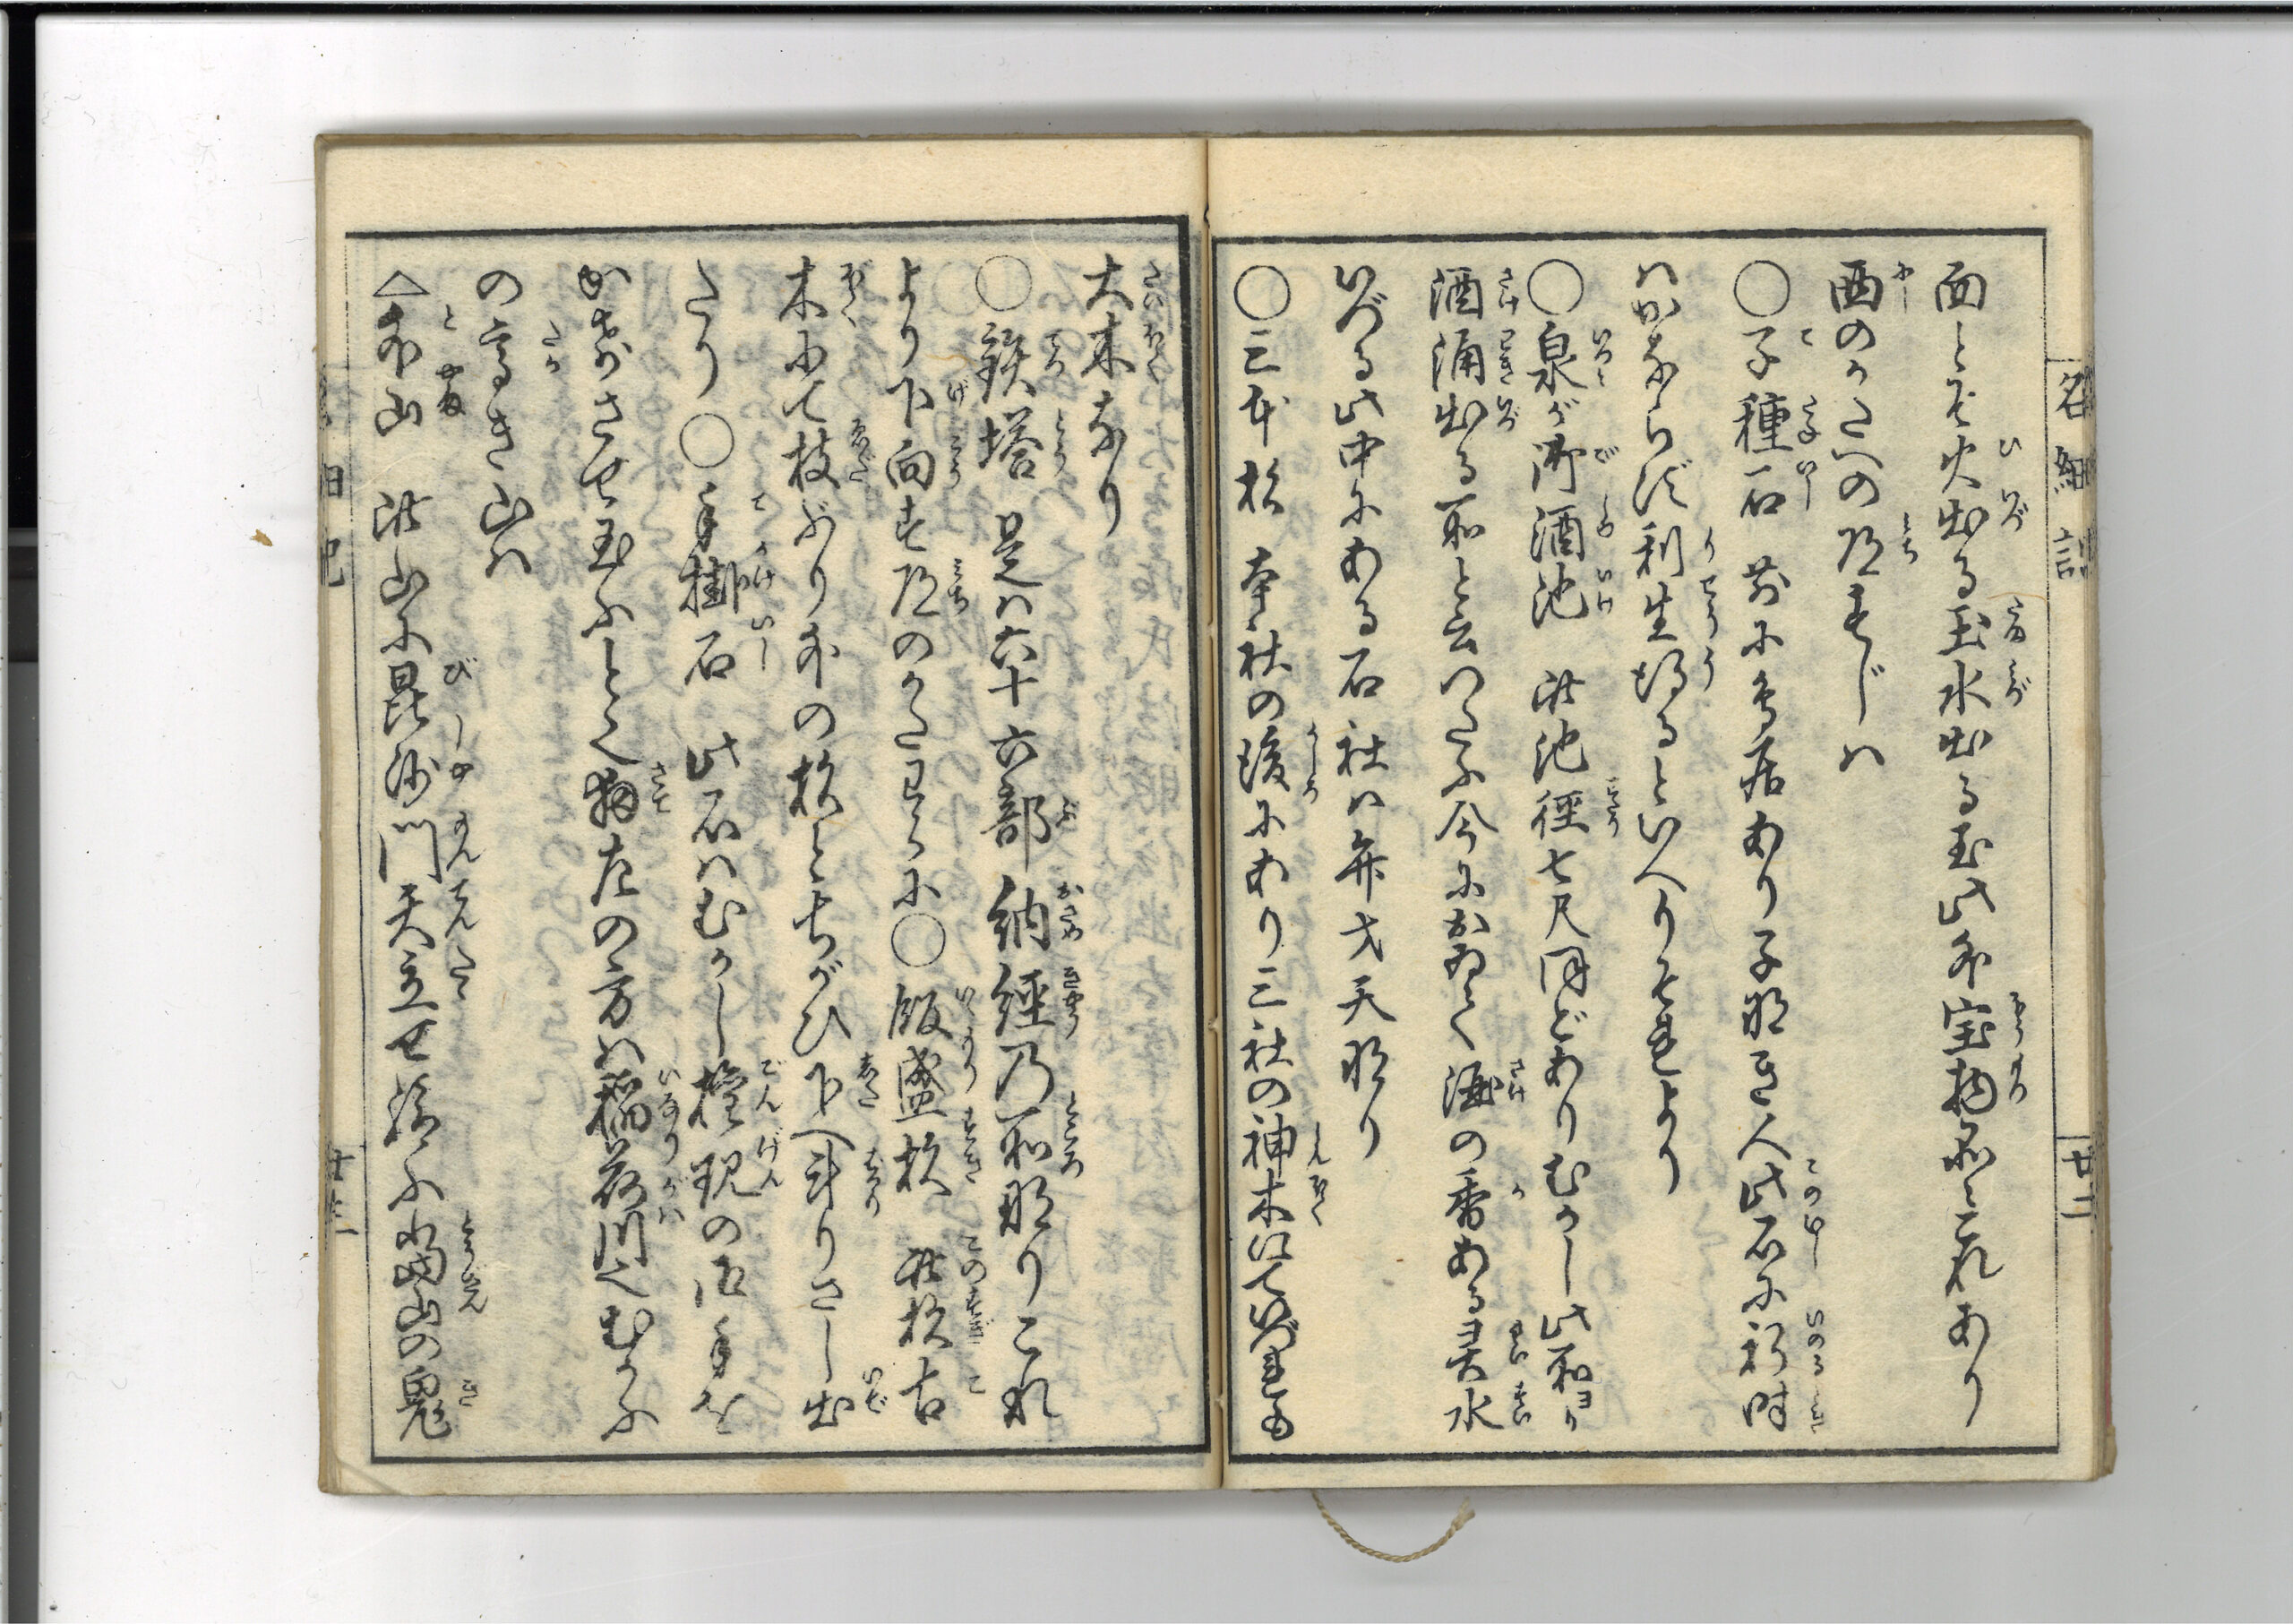 名細記
廿二
面とそ火出る玉水出る玉此外宝物品々これあり
西のかたへの道すじハ
〇子種石 前に鳥居あり子那き人此石に祈時
ハかならず利生得るといへりそれより
〇泉が御酒池 此池徑七尺ほどありむかし此所ヨリ
酒涌出る所と云つたふ今におゐて酒の香ある美水
いづる此中にある石社ハ弁才天那り
〇三本杉 本社の後にあり三社の神木にていづれも
大木なり
〇鉄塔 是ハ六十六部納經乃所那りこれ
より下向す道のかたわらに〇飯盛杉 此杉古
木にて枝ぶり外の杉とちがひ下へ計りさし出
たり〇手掛石 此石ハむかし權現の御手を
かけさせ玉ふとく扨左の方ハ稲荷川へむかふ
の高き山ハ
△外山 此山に毘沙門天立せ給ふ当山の鬼
廿三